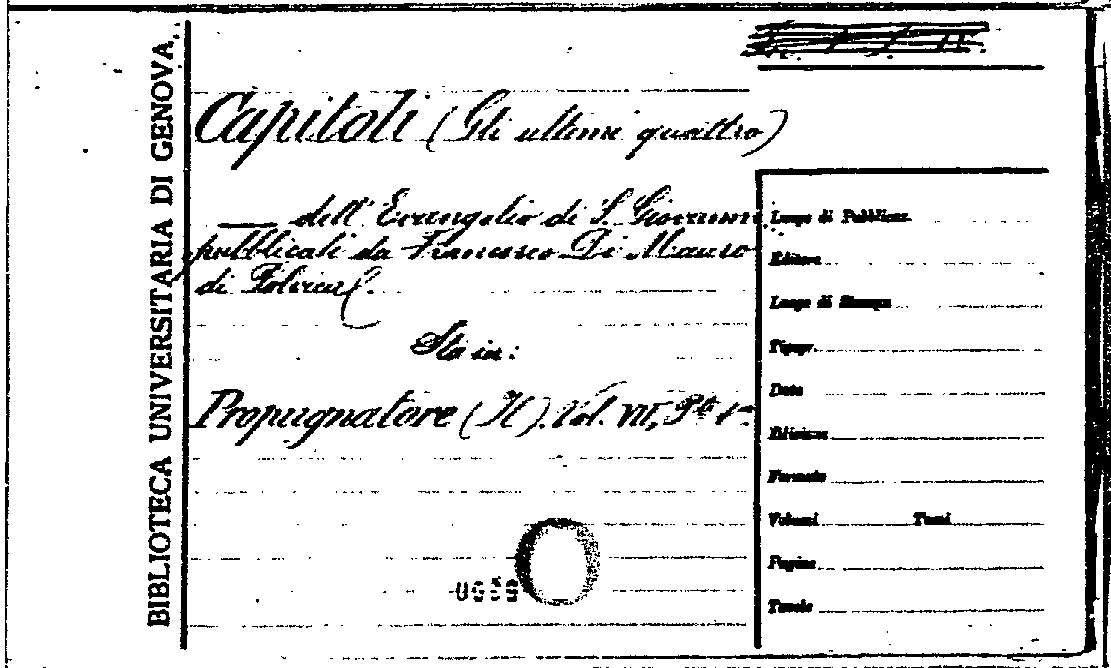 BIBLIOTECA UNIVERSITARIA DI GENOVA
Capitoli (Gli ultimi quattro)
dell' Evangelio di S. Giovanni
pubblicati da Francesco Di Mauro
di Polvica.
Sta in:
Propugnatore (Il). Vol. VII, Pte 1a
Luogo di Pubblicaz.
Editore
Luogo di Stampa
Tipogr.
Data
Edizione
Formato
Volumi Tomi
Pagine
Tavole